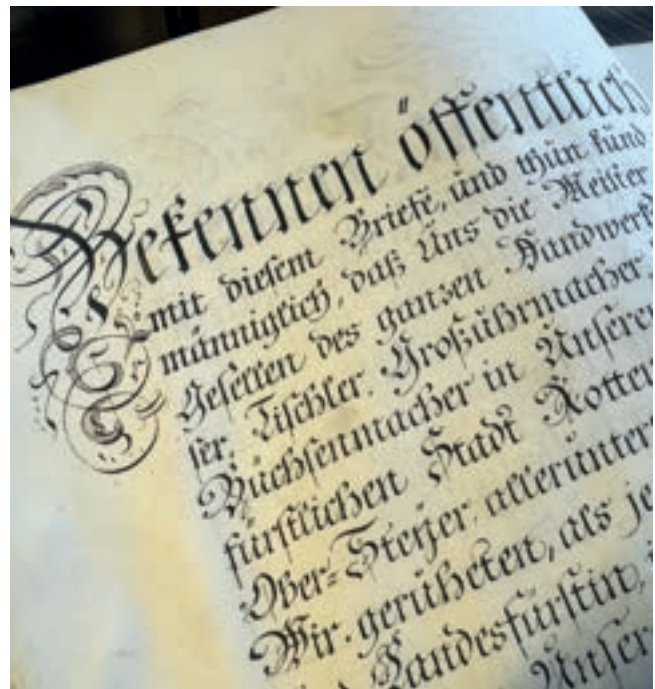 Bekennen öffentlich
mit diesem Briefe, und thun kund
männiglich, daß Uns die Meister
Gesellen des ganzen Handwerks
ser, Tischler, Großuhrmacher,
Büchsenmacher in Unseren
fürstlichen Stadt Rotten
Ober-Steyer, allerunter
Wir geruheten, als je
Landesfürstin,
Unser